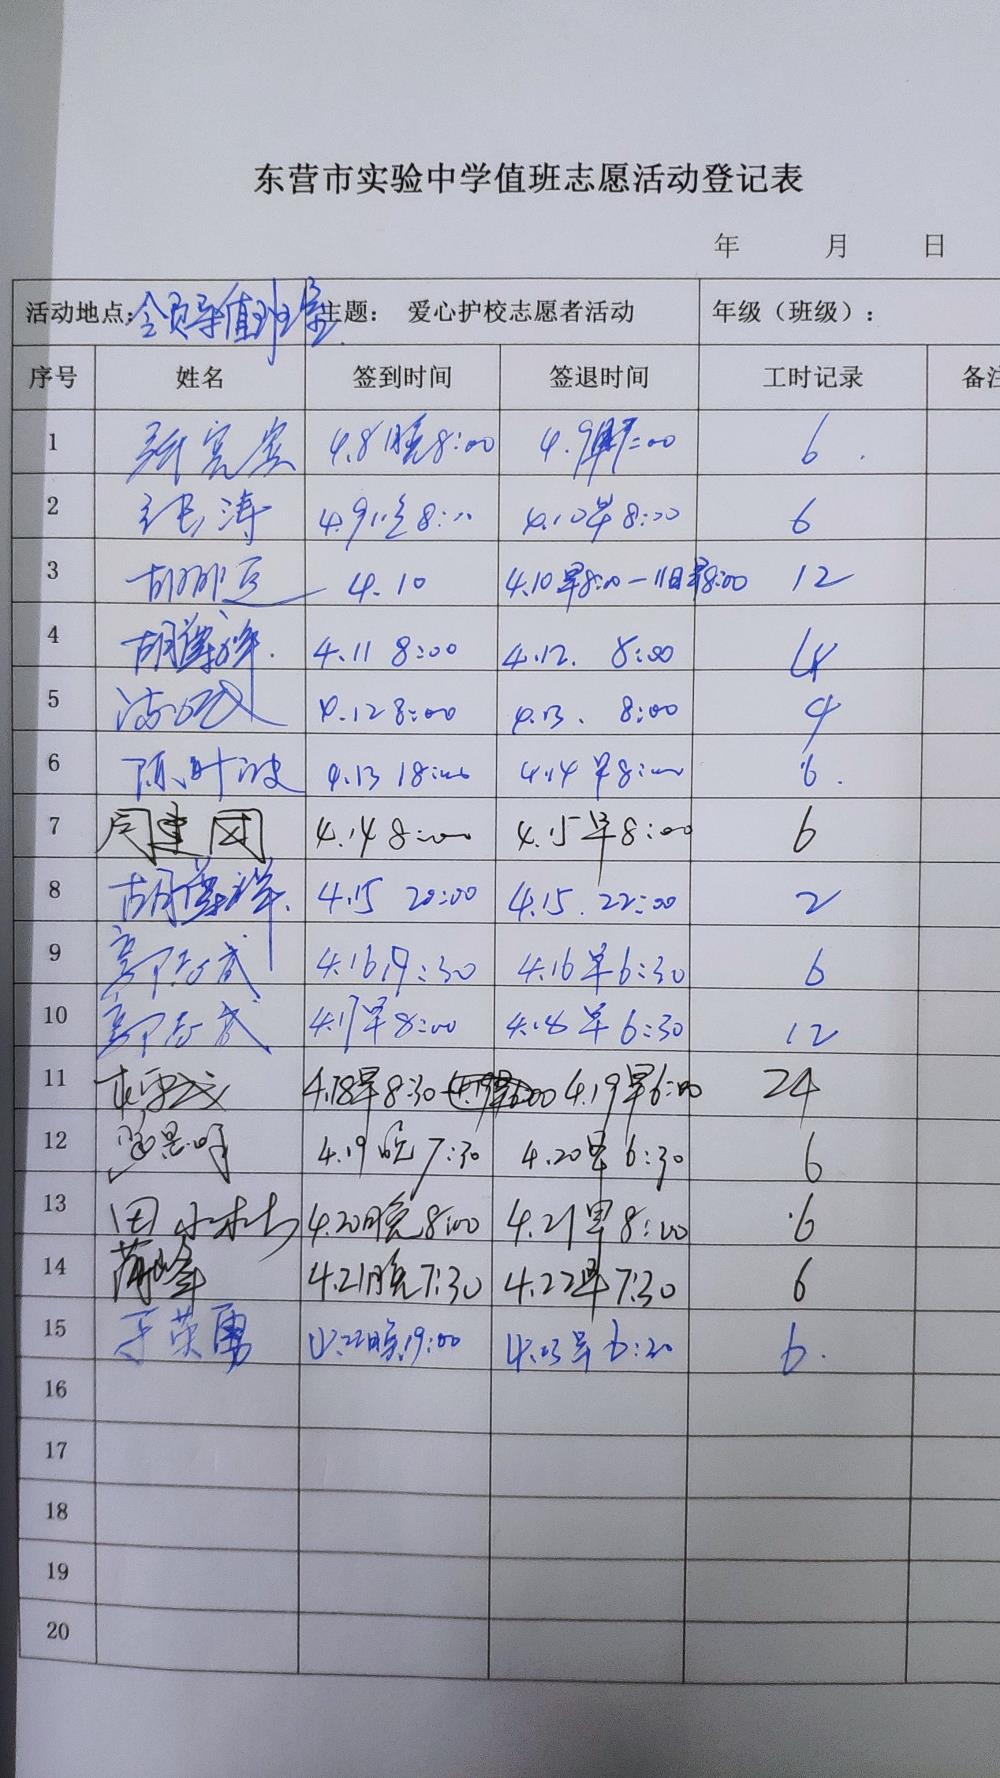 东营市实验中学值班志愿活动登记表
年 月 日
活动地点: 主题: 爱心护校志愿者活动 年级（班级）:
序号 姓名 签到时间 签退时间 工时记录
1 4.8晚8:00 4.9早7:00 6
2 张涛 4.9晚8:00 4.10早8:00 6
3 4.10 4.10早8:00-11日早8:00 12
4 4.11 8:00 4.12. 8:00
5 4.12 8:00 4.13. 8:00 4
6 4.13 18:00 4.14早8:00 6.
7 周建国 4.14 8:00 4.15早8:00 6
8 4.15 20:00 4.15. 22:00 2
9 4.16 19:30 4.16早6:30 6
10 4.17早8:00 4.18早6:30 12
11 4.18早8:30 4.19早6:00 24
12 4.19晚7:30 4.20早6:30 6
13 田 4.20晚8:00 4.21早8:00 6
14 薄峰 4.21晚7:30 4.22早7:30 6
15 于英勇 4.22晚19:00 4.23早6:30 6.
16
17
18
19
20